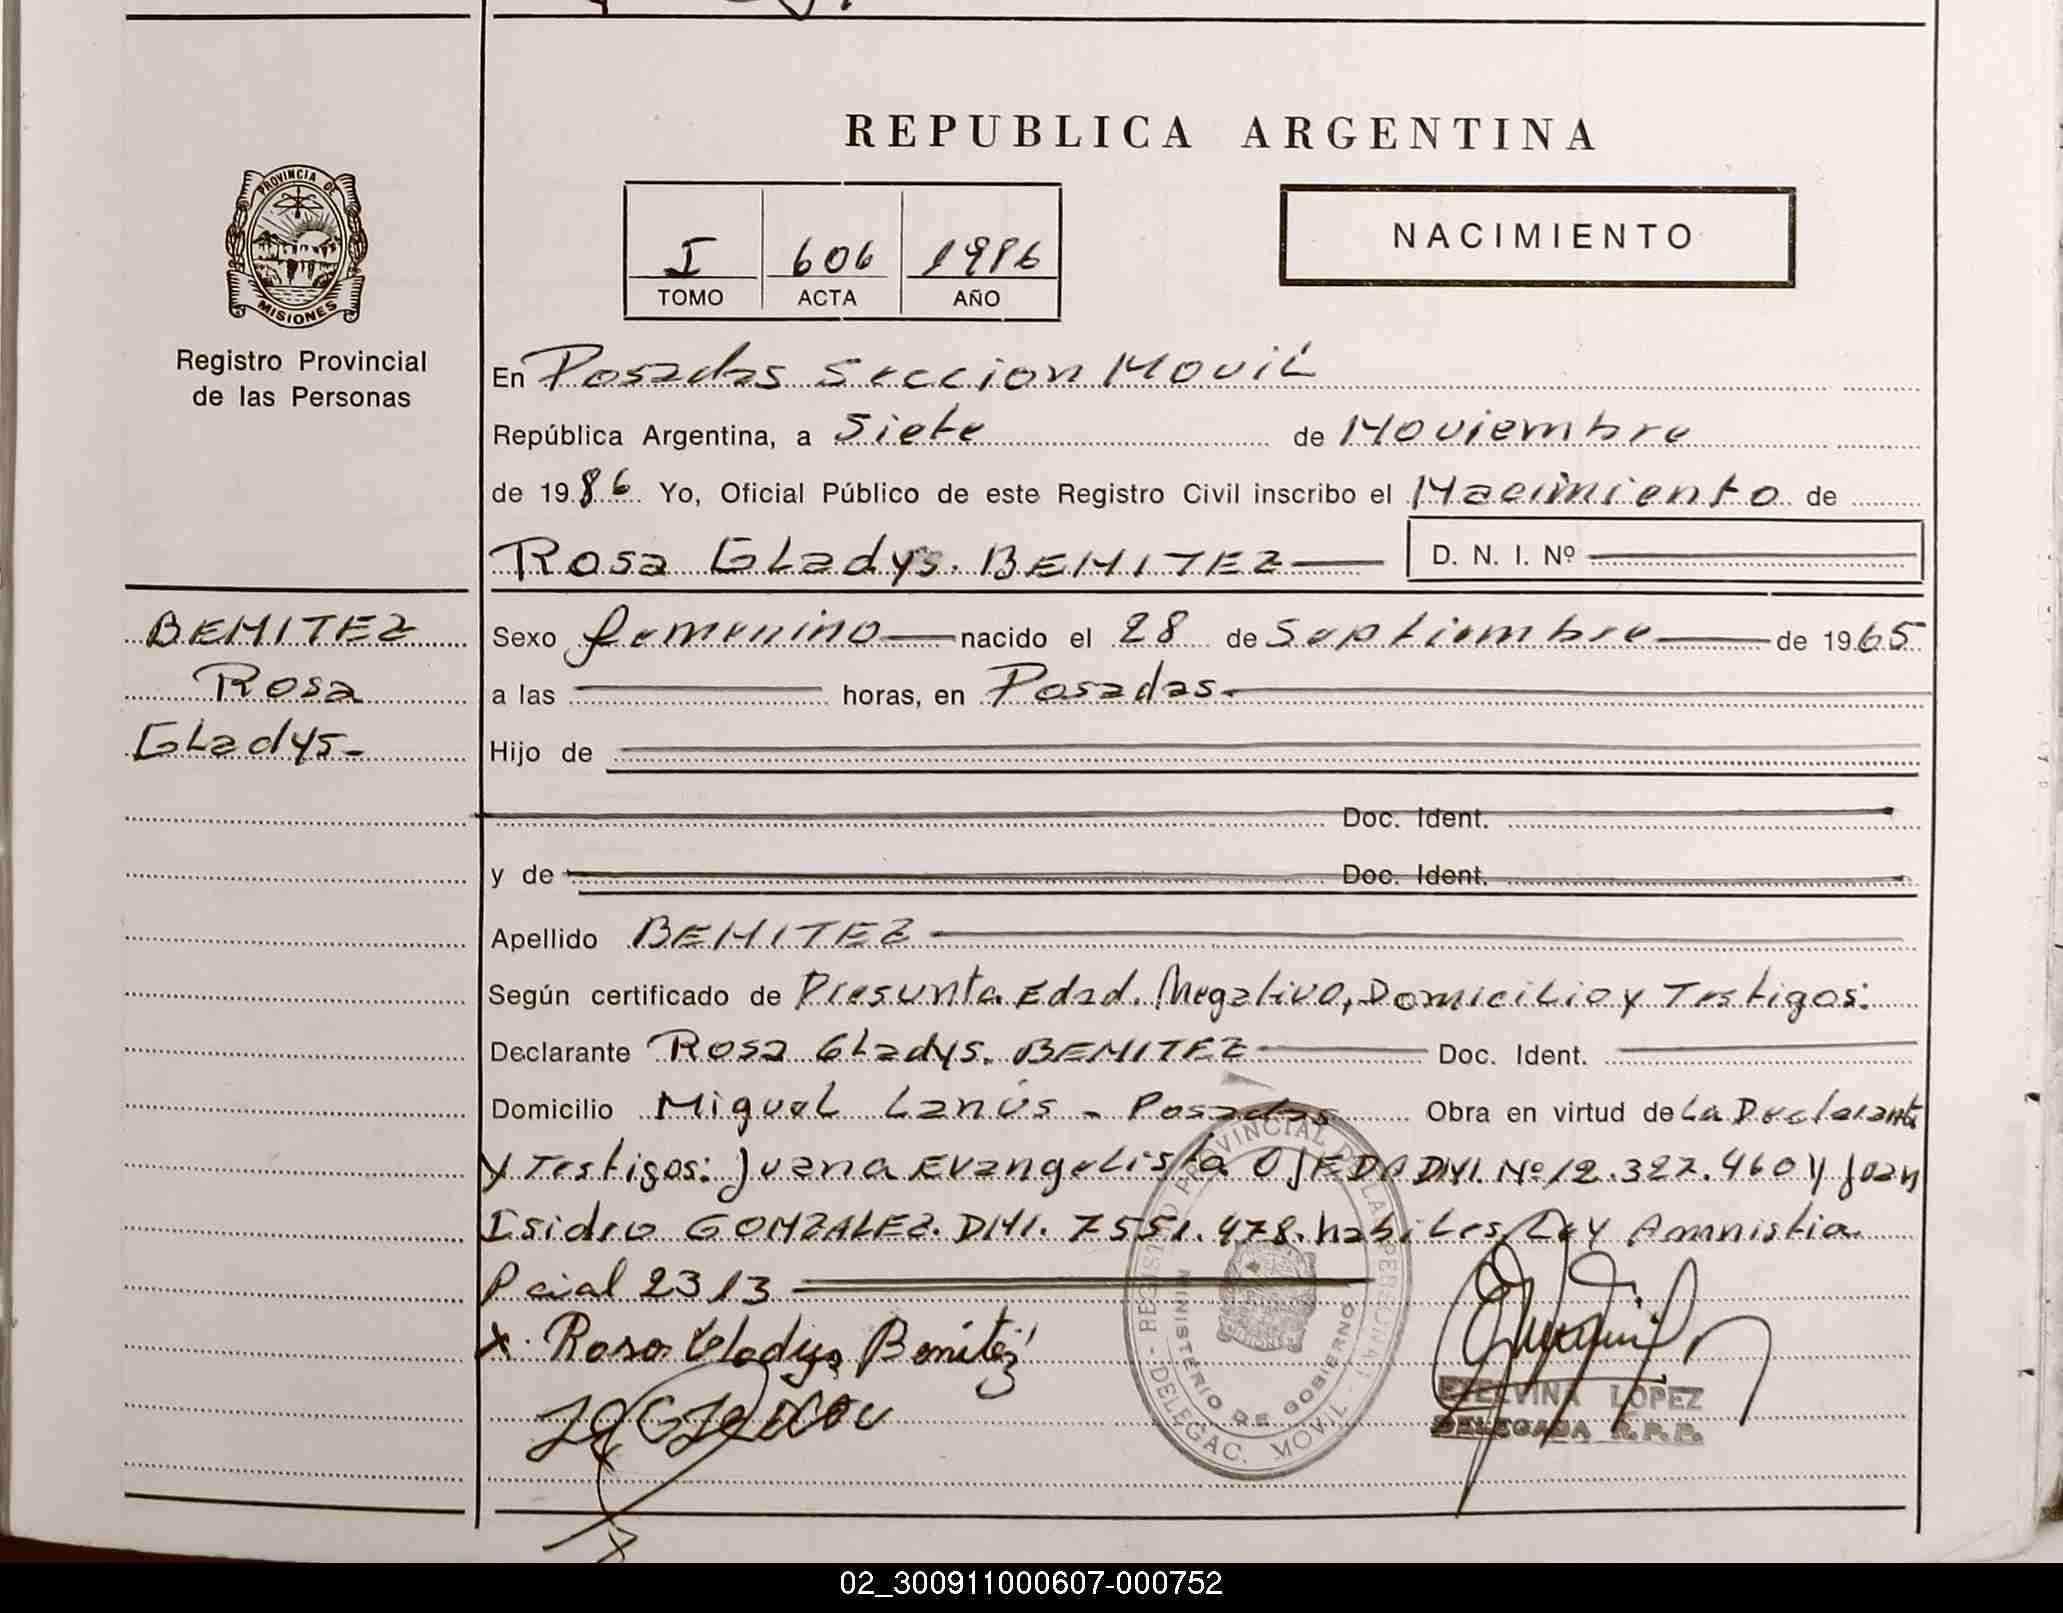 REPUBLICA ARGENTINA
PROVINCIA DE
MISIONES
Registro Provincial
de las Personas
I 606 1986
TOMO ACTA AÑO
NACIMIENTO
En Posadas Seccion Movil
República Argentina, a Siete de Noviembre
de 1986 Yo, Oficial Público de este Registro Civil inscribo el Nacimiento de
Rosa Gladys. BENITEZ D. N. I. Nº
BENITEZ
Rosa
Gladys-
Sexo femenino nacido el 28 de Septiembre de 1965
a las horas, en Posadas-
Hijo de
Doc. Ident.
y de Doc. Ident.
Apellido BENITEZ
Según certificado de Presunta Edad. Negativo, Domicilio y Testigos:
Declarante Rosa Gladys. BENITEZ Doc. Ident.
Domicilio Miguel Lanús - Posadas Obra en virtud de La Declarante
y Testigos: Juana Evangelista OJEDA DNI. Nº 12.327.460 y Juan
Isidro GONZALEZ. DNI. 7551.478. habiles, Ley Amnistia
Pcial 2313
x. Rosa Gladys Benítez
REGISTRO PROVINCIAL DE LAS PERSONAS - DELEGAC. MOVIL -
MINISTERIO DE GOBIERNO
ETELVINA LOPEZ
DELEGADA R.P.P.
02_300911000607-000752